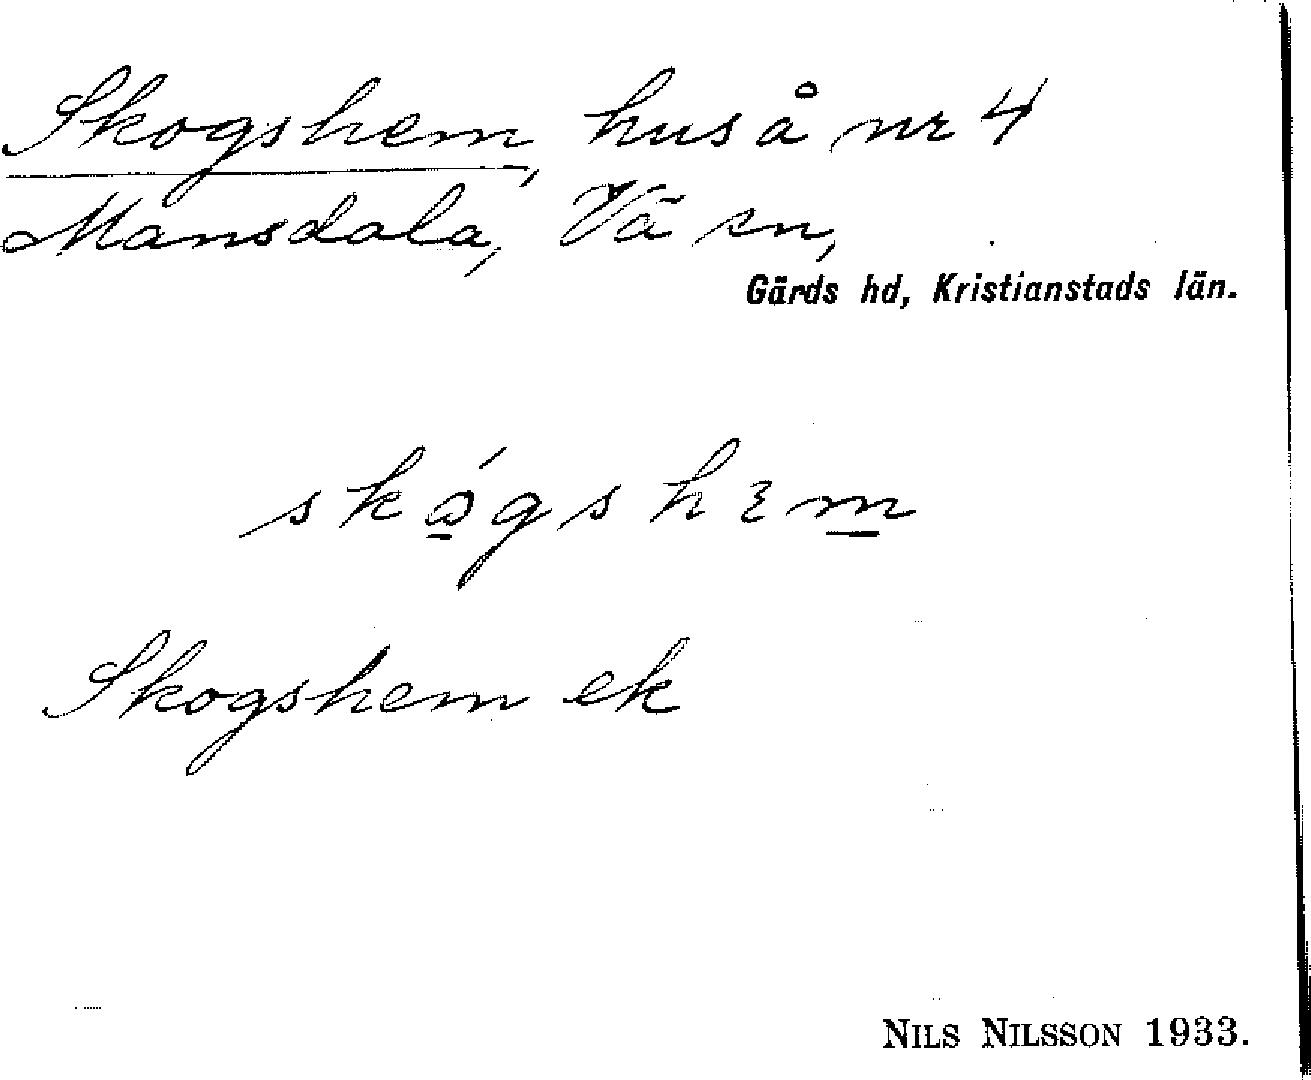 Skogshem, hus å nr 4
Mansdala, Vä sn,
Gärds hd, Kristianstads län.
Skogshem ek
NILS NILSSON 1933.